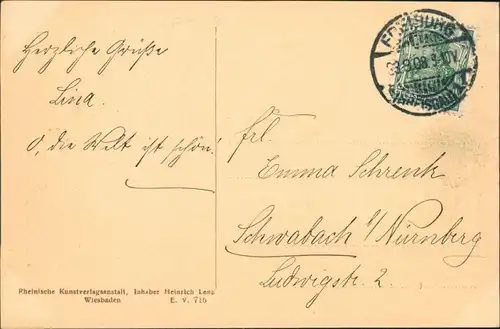 Herzliche Grüße
Lina.
O, die Welt ist schön!
Rheinische Kunstverlagsanstalt, Inhaber Heinrich Lenz
Wiesbaden E. V. 716
FREIBURG
(BREISGAU)
Frl.
Emma Schrenk
Schwabach b/ Nürnberg
Ludwigstr. 2.